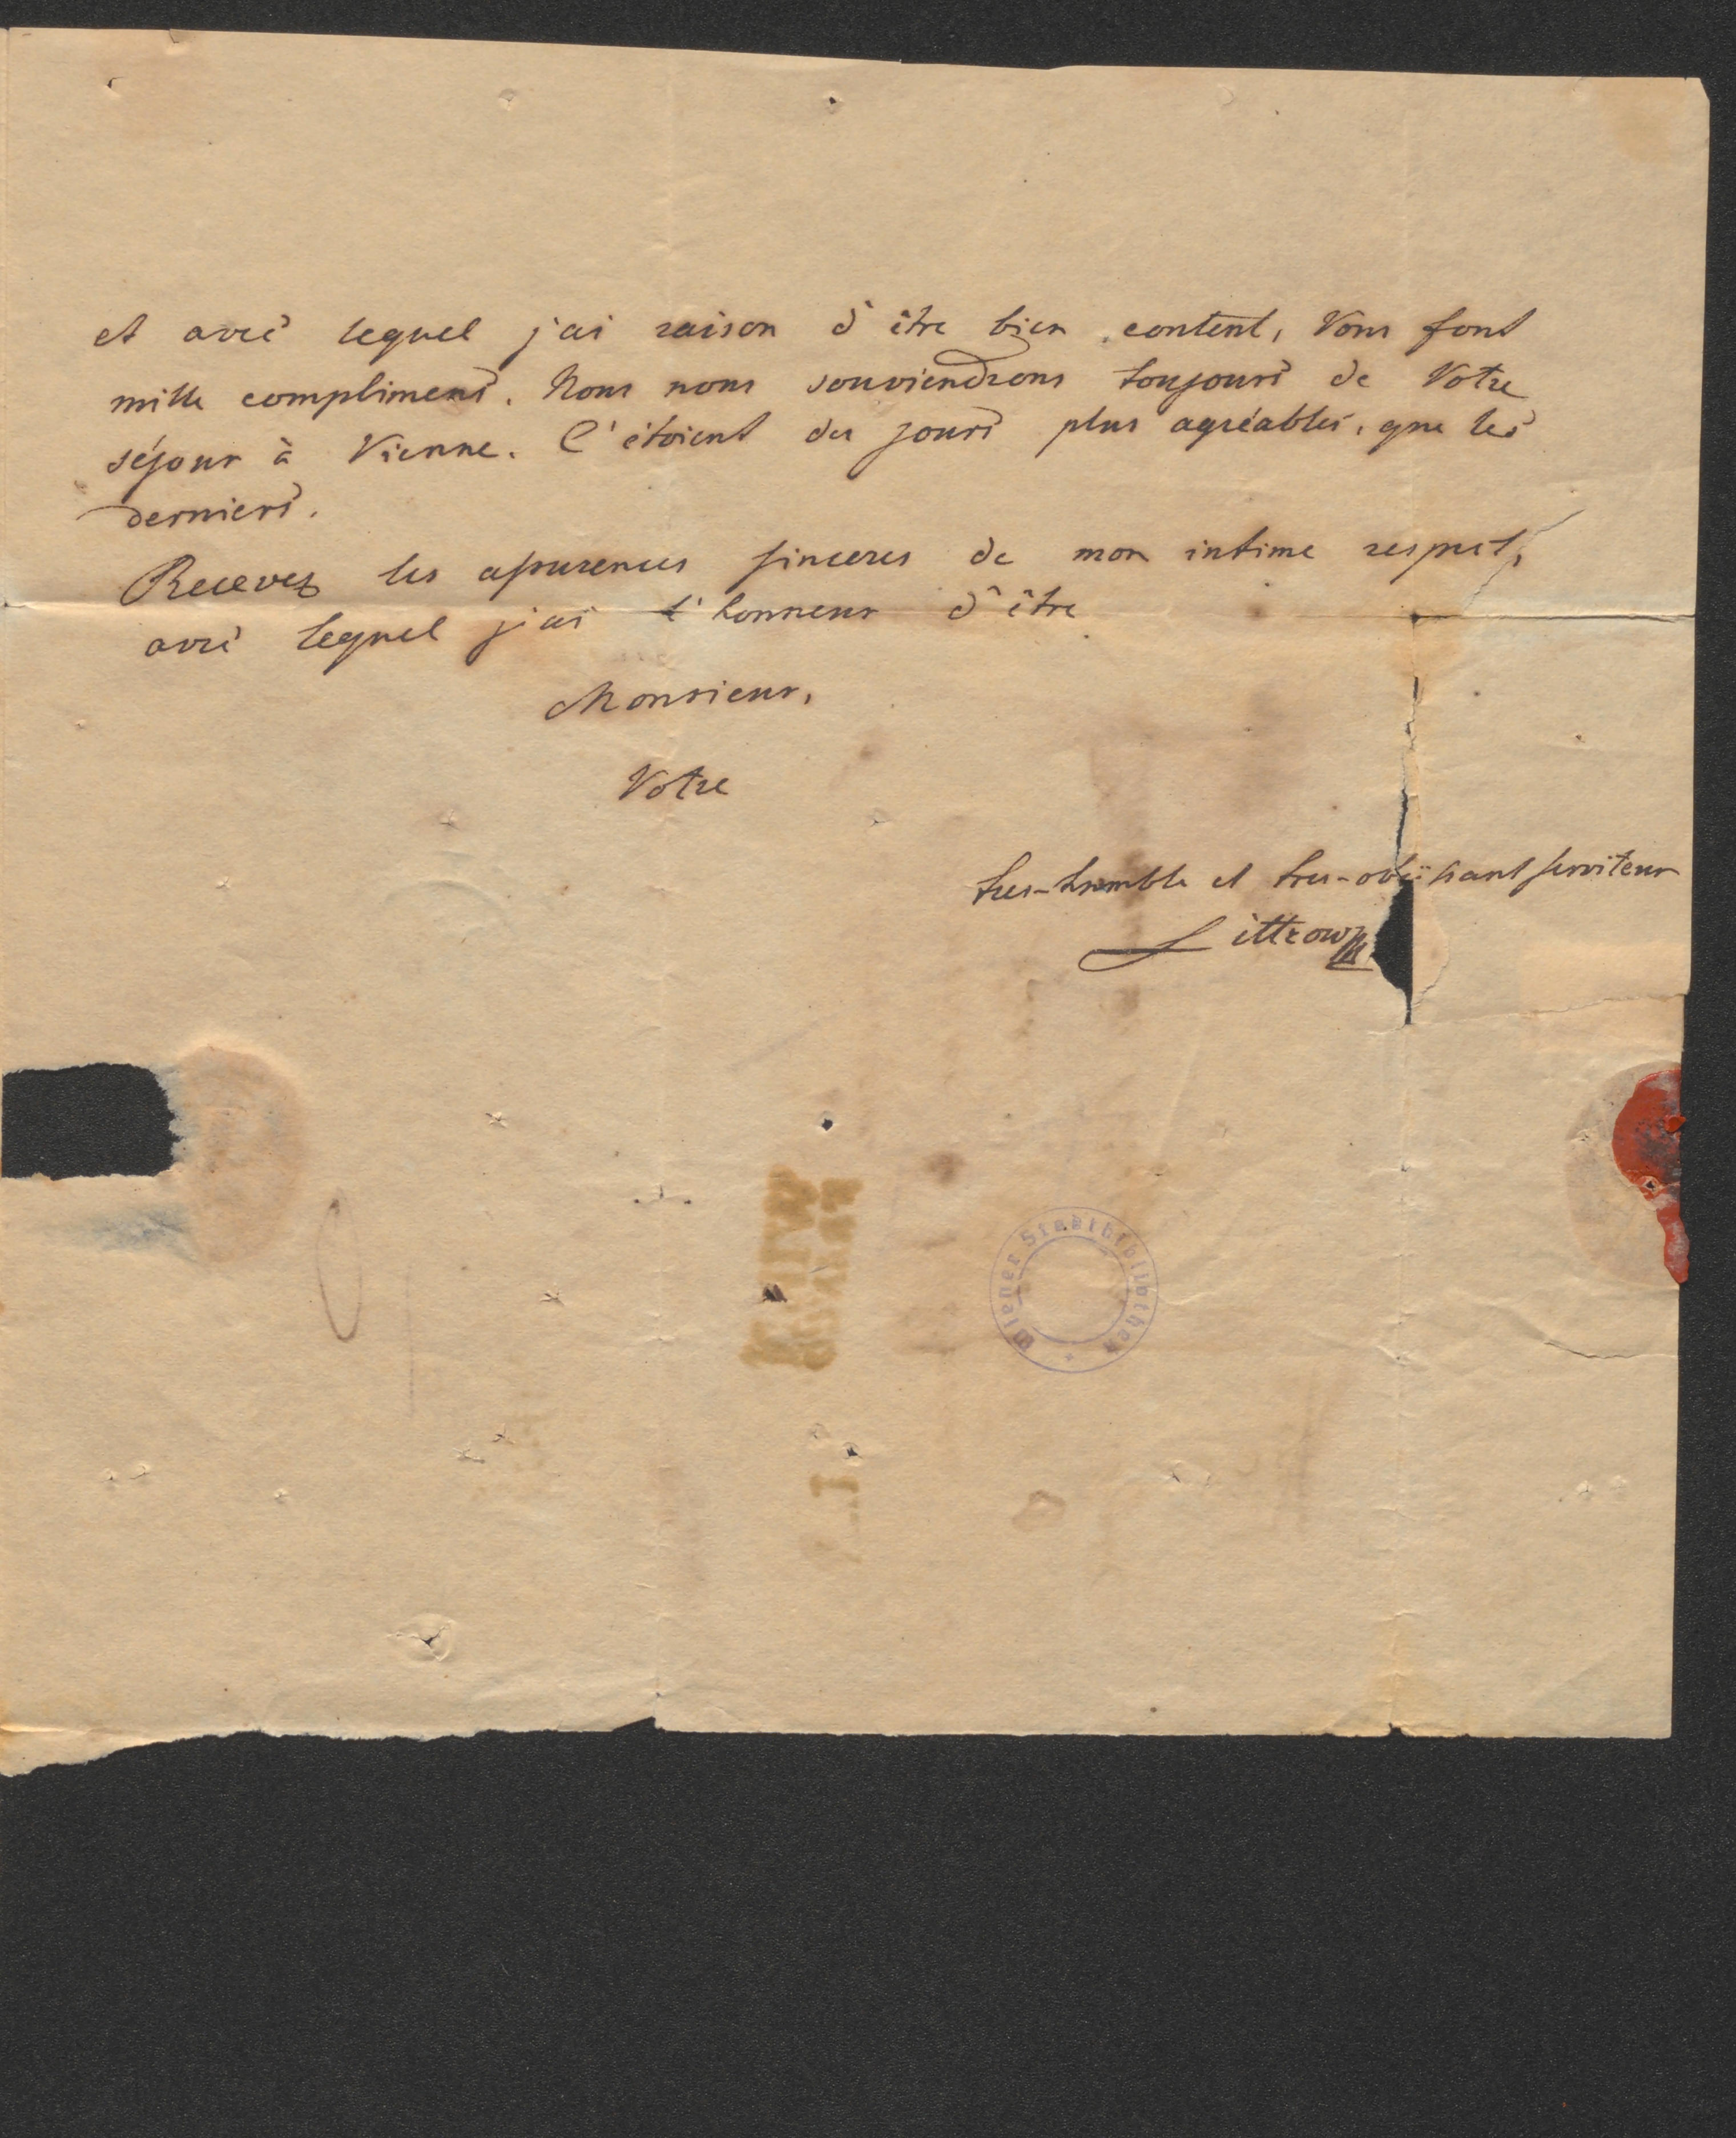 et avec lequel j'ai raison d'être bien content, Vous font
mille complimens. Nous nous souviendrons toujours de Votre
séjour à Vienne. C'étoient des jours plus agréables, que les
derniers.
Recevez les assurences sinceres de mon intime respect,
avec lequel j'ai l'honneur d'être
Monsieur,
Votre
tres-humble et tres-obëissant serviteur
Littrow
Wiener Stadtbibliothek